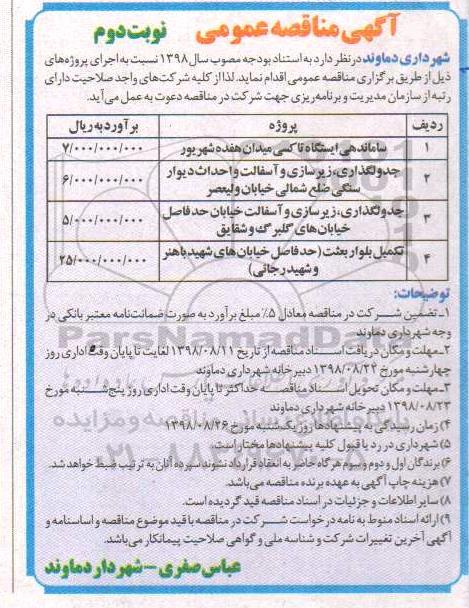 آگهی مناقصه عمومی نوبت دوم
شهرداری دماوند در نظر دارد به استناد بودجه مصوب سال ۱۳۹۸ نسبت به اجرای پروژه‌های
ذیل از طریق برگزاری مناقصه عمومی اقدام نماید. لذا از کلیه شرکت‌های واجد صلاحیت دارای
رتبه از سازمان مدیریت و برنامه‌ریزی جهت شرکت در مناقصه دعوت به عمل می‌آید.
ردیف پروژه برآورد به ریال
۱ ساماندهی ایستگاه تاکسی میدان هفده شهریور ۷/۰۰۰/۰۰۰/۰۰۰
۲ جدولگذاری، زیرسازی و آسفالت و احداث دیوار
سنگی ضلع شمالی خیابان ولیعصر ۶/۰۰۰/۰۰۰/۰۰۰
۳ جدولگذاری، زیرسازی و آسفالت خیابان حدفاصل
خیابان‌های گلبرگ و شقایق ۵/۰۰۰/۰۰۰/۰۰۰
۴ تکمیل بلوار بعثت (حدفاصل خیابان‌های شهید باهنر
و شهید رجائی) ۲۵/۰۰۰/۰۰۰/۰۰۰
توضیحات:
۱ـ تضمین شرکت در مناقصه معادل ۵٪ مبلغ برآورد به صورت ضمانت‌نامه معتبر بانکی در
وجه شهرداری دماوند
۲ـ مهلت و مکان دریافت اسناد مناقصه از تاریخ ۱۳۹۸/۰۸/۱۱ لغایت تا پایان وقت اداری روز
چهارشنبه مورخ ۱۳۹۸/۰۸/۲۲ دبیرخانه شهرداری دماوند
۳ـ مهلت و مکان تحویل اسناد مناقصه حداکثر تا پایان وقت اداری روز پنج‌شنبه مورخ
۱۳۹۸/۰۸/۲۳ دبیرخانه شهرداری دماوند
۴) زمان رسیدگی به پیشنهادها روز یکشنبه مورخ ۱۳۹۸/۰۸/۲۶
۵) شهرداری در رد یا قبول کلیه پیشنهادها مختار است.
۶) برندگان اول و دوم و سوم هرگاه حاضر به انعقاد قرارداد نشوند سپرده آنان به ترتیب ضبط خواهد شد.
۷) هزینه چاپ آگهی به عهده برنده مناقصه می‌باشد.
۸) سایر اطلاعات و جزئیات در اسناد مناقصه قید گردیده است.
۹) ارائه اسناد منوط به نامه درخواست شرکت در مناقصه با قید موضوع مناقصه و اساسنامه و
آگهی آخرین تغییرات شرکت و شناسه ملی و گواهی صلاحیت پیمانکار می‌باشد.
عباس صفری – شهردار دماوند
ParsNamadData